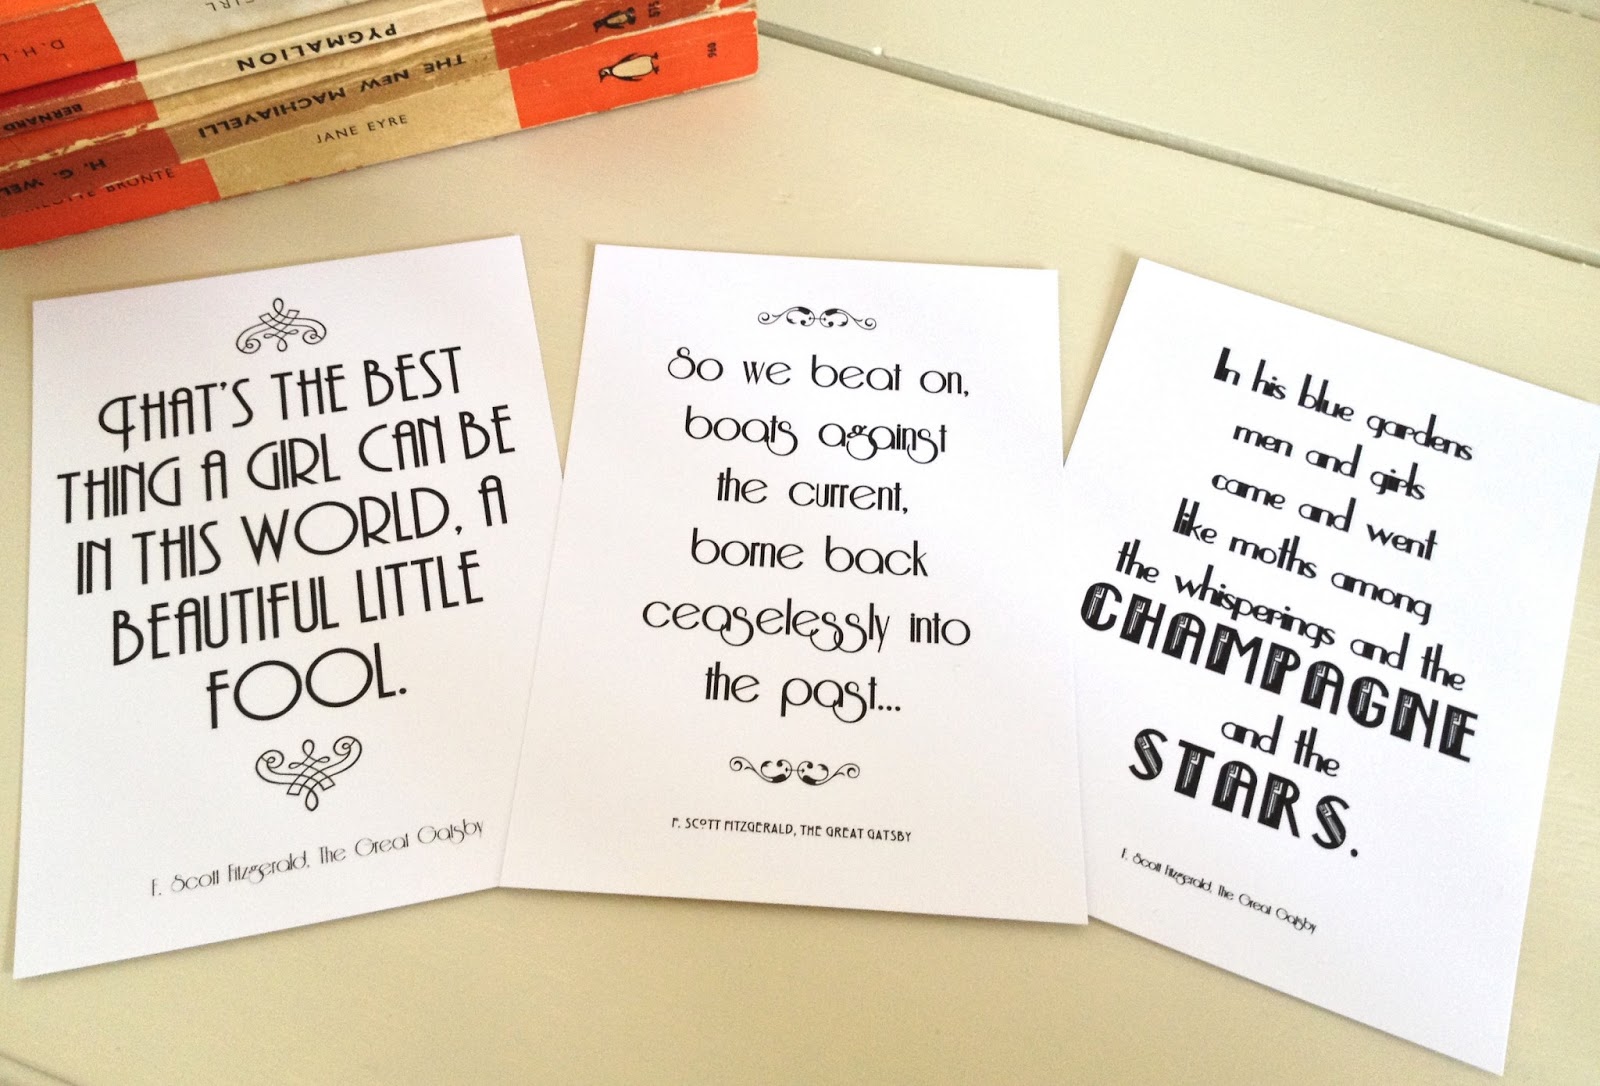 GIRL
D. H. L
PYGMALION
BERNARD
THE NEW MACHIAVELLI
H. G. WEL
575
JANE EYRE
BRONTE
960
THAT'S THE BEST
THING A GIRL CAN BE
IN THIS WORLD, A
BEAUTIFUL LITTLE
FOOL.
F. Scott Fitzgerald, The Great Gatsby
So we beat on,
boats against
the current,
borne back
ceaselessly into
the past...
F. SCOTT FITZGERALD, THE GREAT GATSBY
In his blue gardens
men and girls
came and went
like moths among
the whisperings and the
CHAMPAGNE
and the
STARS.
F. Scott Fitzgerald, The Great Gatsby